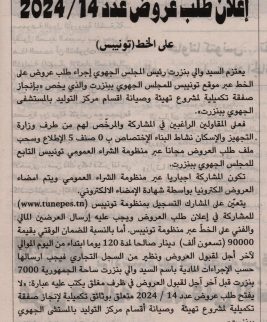 إعلان طلب عروض عدد 14/ 2024
على الخط (تونيبس)
يعتزم السيد والي بنزرت رئيس المجلس الجهوي إجراء طلب عروض على
الخط عبر موقع تونيبس للمجلس الجهوي ببنزرت والذي يخص «إنجاز
صفقة تكميلية لمشروع تهيئة وصيانة اقسام مركز التوليد بالمستشفى
الجهوي ببنزرت.
فعلى المقاولين الراغبين في المشاركة والمرخّص لهم من طرف وزارة
التجهيز والإسكان نشاط البناء الإختصاص ب 0 صنف 5 الإطلاع وسحب
ملف طلب العروض مجانا عبر منظومة الشراء العمومي تونيبس التابع
للمجلس الجهوي ببنزرت.
تكون المشاركة اجباريا عبر منظومة الشراء العمومي ويتم امضاء
العروض الكترونيا بواسطة شهادة الإمضاء الالكتروني.
يتعيّن على المشارك التسجيل بمنظومة تونيبس (www.tunepes.tn)
للمشاركة في إعلان طلب العروض ويجب عليه إرسال العرضين المالي
والفني على الخط عبر منظومة تونيبس. أما بالنسبة للضمان الوقتي بقيمة
90000 (تسعون ألف) دينار صالحا لمدة 120 يوما ابتداء من اليوم الموالي
لآخر أجل لقبول العروض ونظير من السجل التجاري فيجب ارسالها
حسب الإجراءات المادية باسم السيد والي بنزرت ساحة الجمهورية 7000
بنزرت قبل آخر أجل لقبول العروض في ظرف مغلق يكتب عليه عبارة: «لا
يفتح طلب عروض عدد 14 / 2024 متعلق بوثائق تكميلية لإنجاز صفقة
تكميلية لمشروع تهيئة وصيانة اقسام مركز التوليد بالمستشفى الجهوي